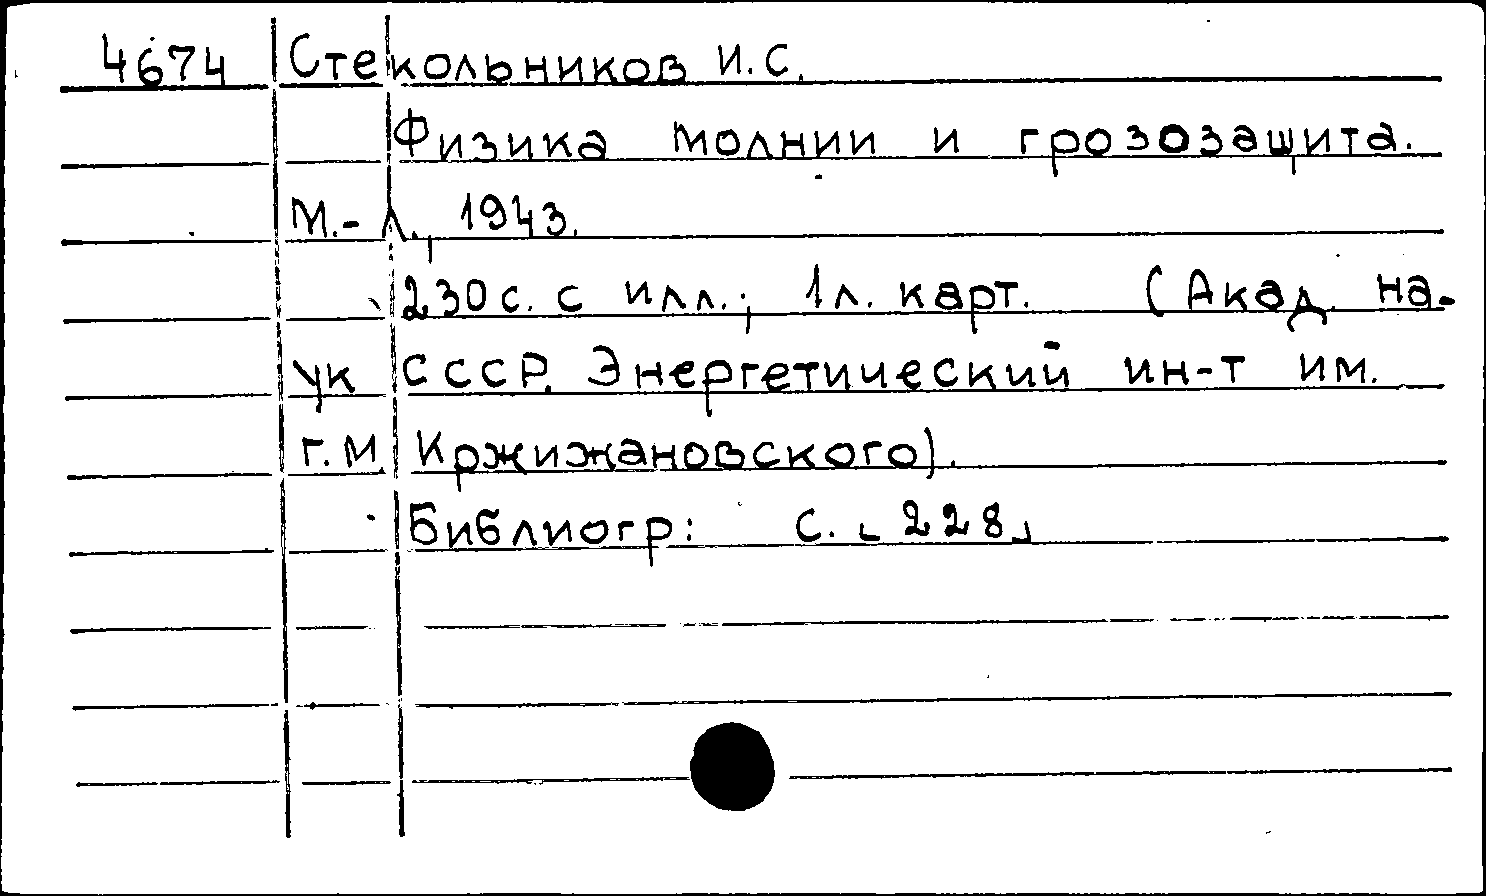 4674 Стекольников И.С.
Физика молнии и грозозащита.
М.-Л., 1943.
230 с. с илл.; 1 л. карт. (Акад. на-
ук СССР. Энергетический ин-т им.
Г.М. Кржижановского).
Библиогр: с. [228]